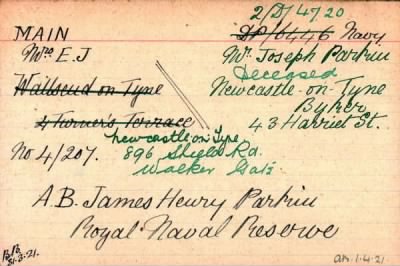 2/D/4720
MAIN
D.P/6446 Navy
Mrs E.J
Mr. Joseph Parkin
Deceased
Wallsend on Tyne
Newcastle-on-Tyne
Byker
4 Turner's Terrace
43 Harriet St.
Newcastle on Tyne
No 4/207.
896 Shields Rd.
Walker Gate
A.B. James Henry Parkin
Royal Naval Reserve
31.3.21.
1.4.21.